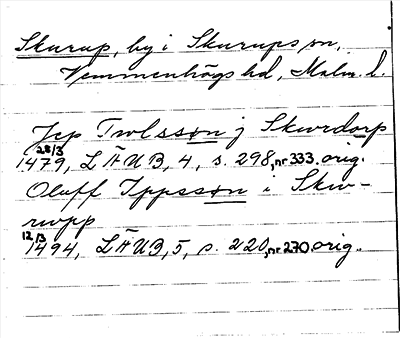 Skurup, by i Skurups sn,
Vemmenhögs hd, Malm. l.
Jep Trwlsson j Skwrdorp
28/3 1479, LÄUB, 4, s. 298, nr 333. orig.
Oluff Jppsson i Skw-
rwpp
12/3 1494, LÄUB, 5, s. 220, nr 270. orig.